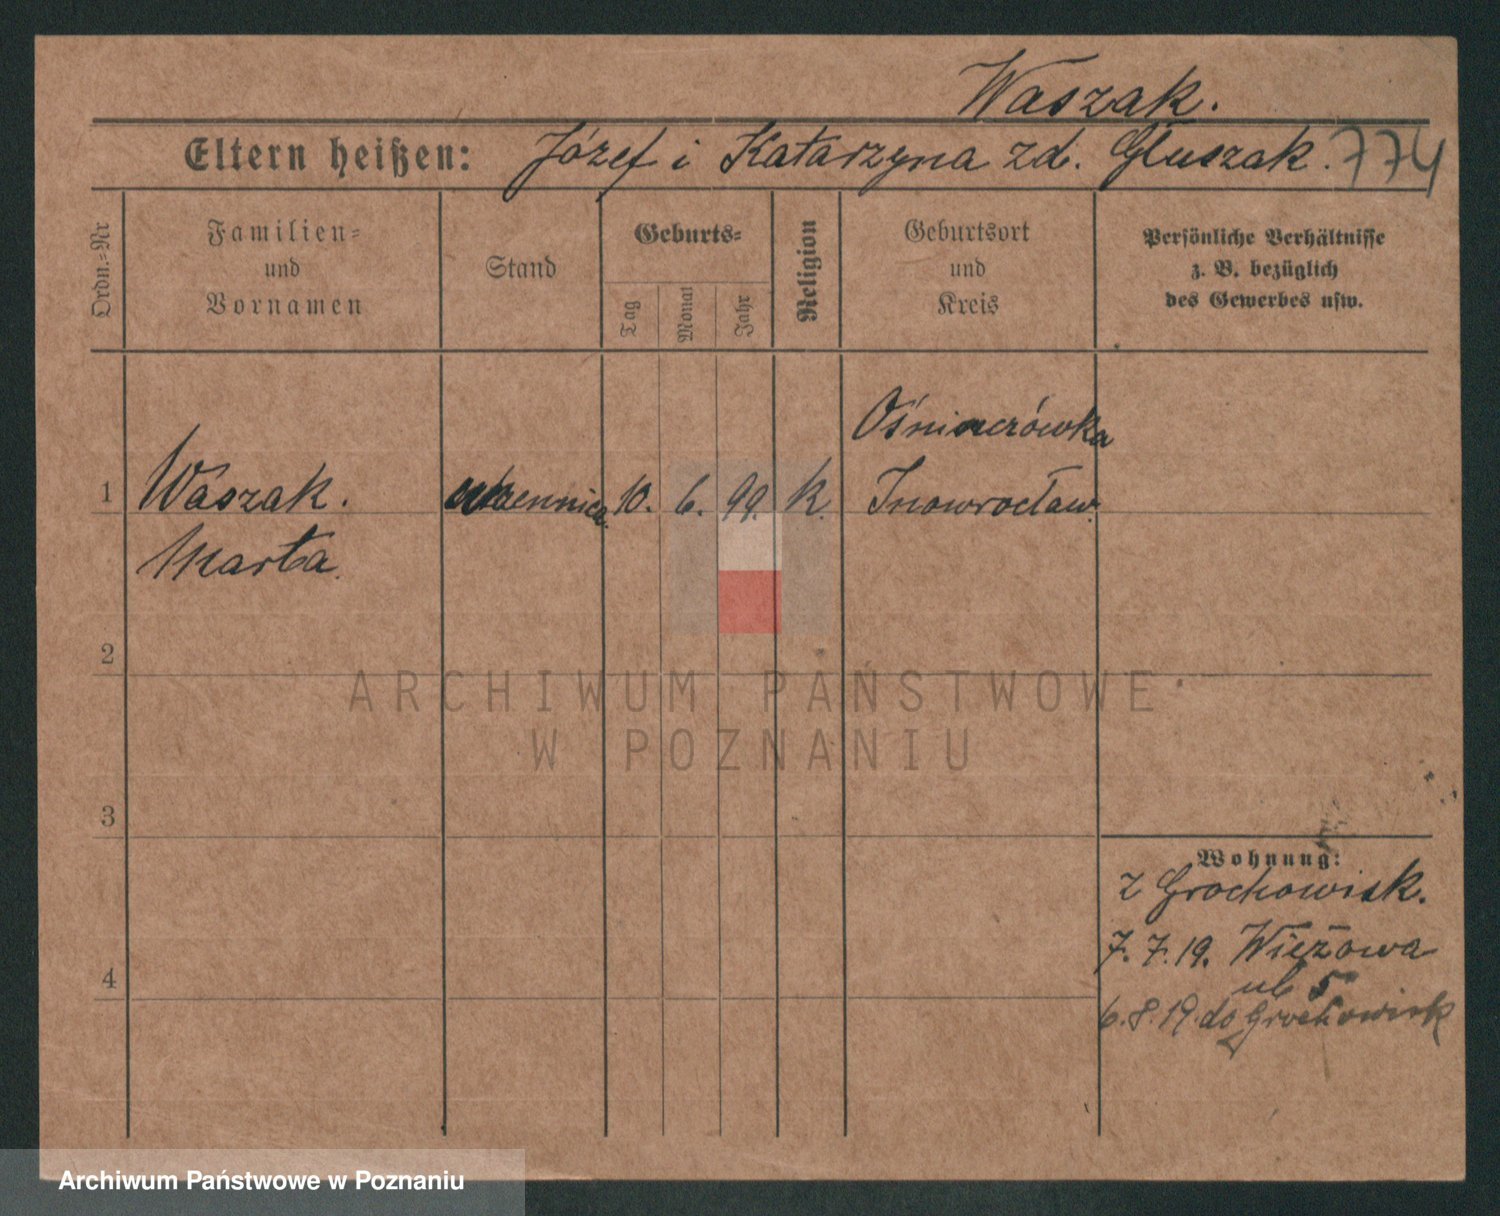 Waszak.
Eltern heißen: Józef i Katarzyna zd. Głuszak. 774
Ordn.=Nr
Familien=
und
Vornamen
Stand
Geburts=
Tag
Monat
Jahr
Religion
Geburtsort
und
Kreis
Persönliche Verhältnisse
z. B. bezüglich
des Gewerbes usw.
1 Waszak. 10. 6. 99. k. Inowrocław.
Marta
2
3
4
Wohnung:
z Grochowisk.
7. 7. 19. Wieżowa
ul 5
6. 8. 19. do Grochowisk
ARCHIWUM PAŃSTWOWE
W POZNANIU
Archiwum Państwowe w Poznaniu